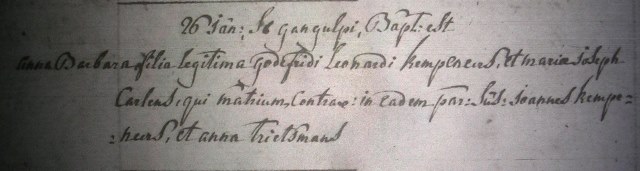 26 Jan: Is gangulpi, Bapt: est
anna Barbara filia legitima godefridi Leonardi kempeneers, et maria joseph
Carlens, qui mãtrium, Contrax: in eadem par: Sus: joannes kempe=
=neers, et anna trietsmans